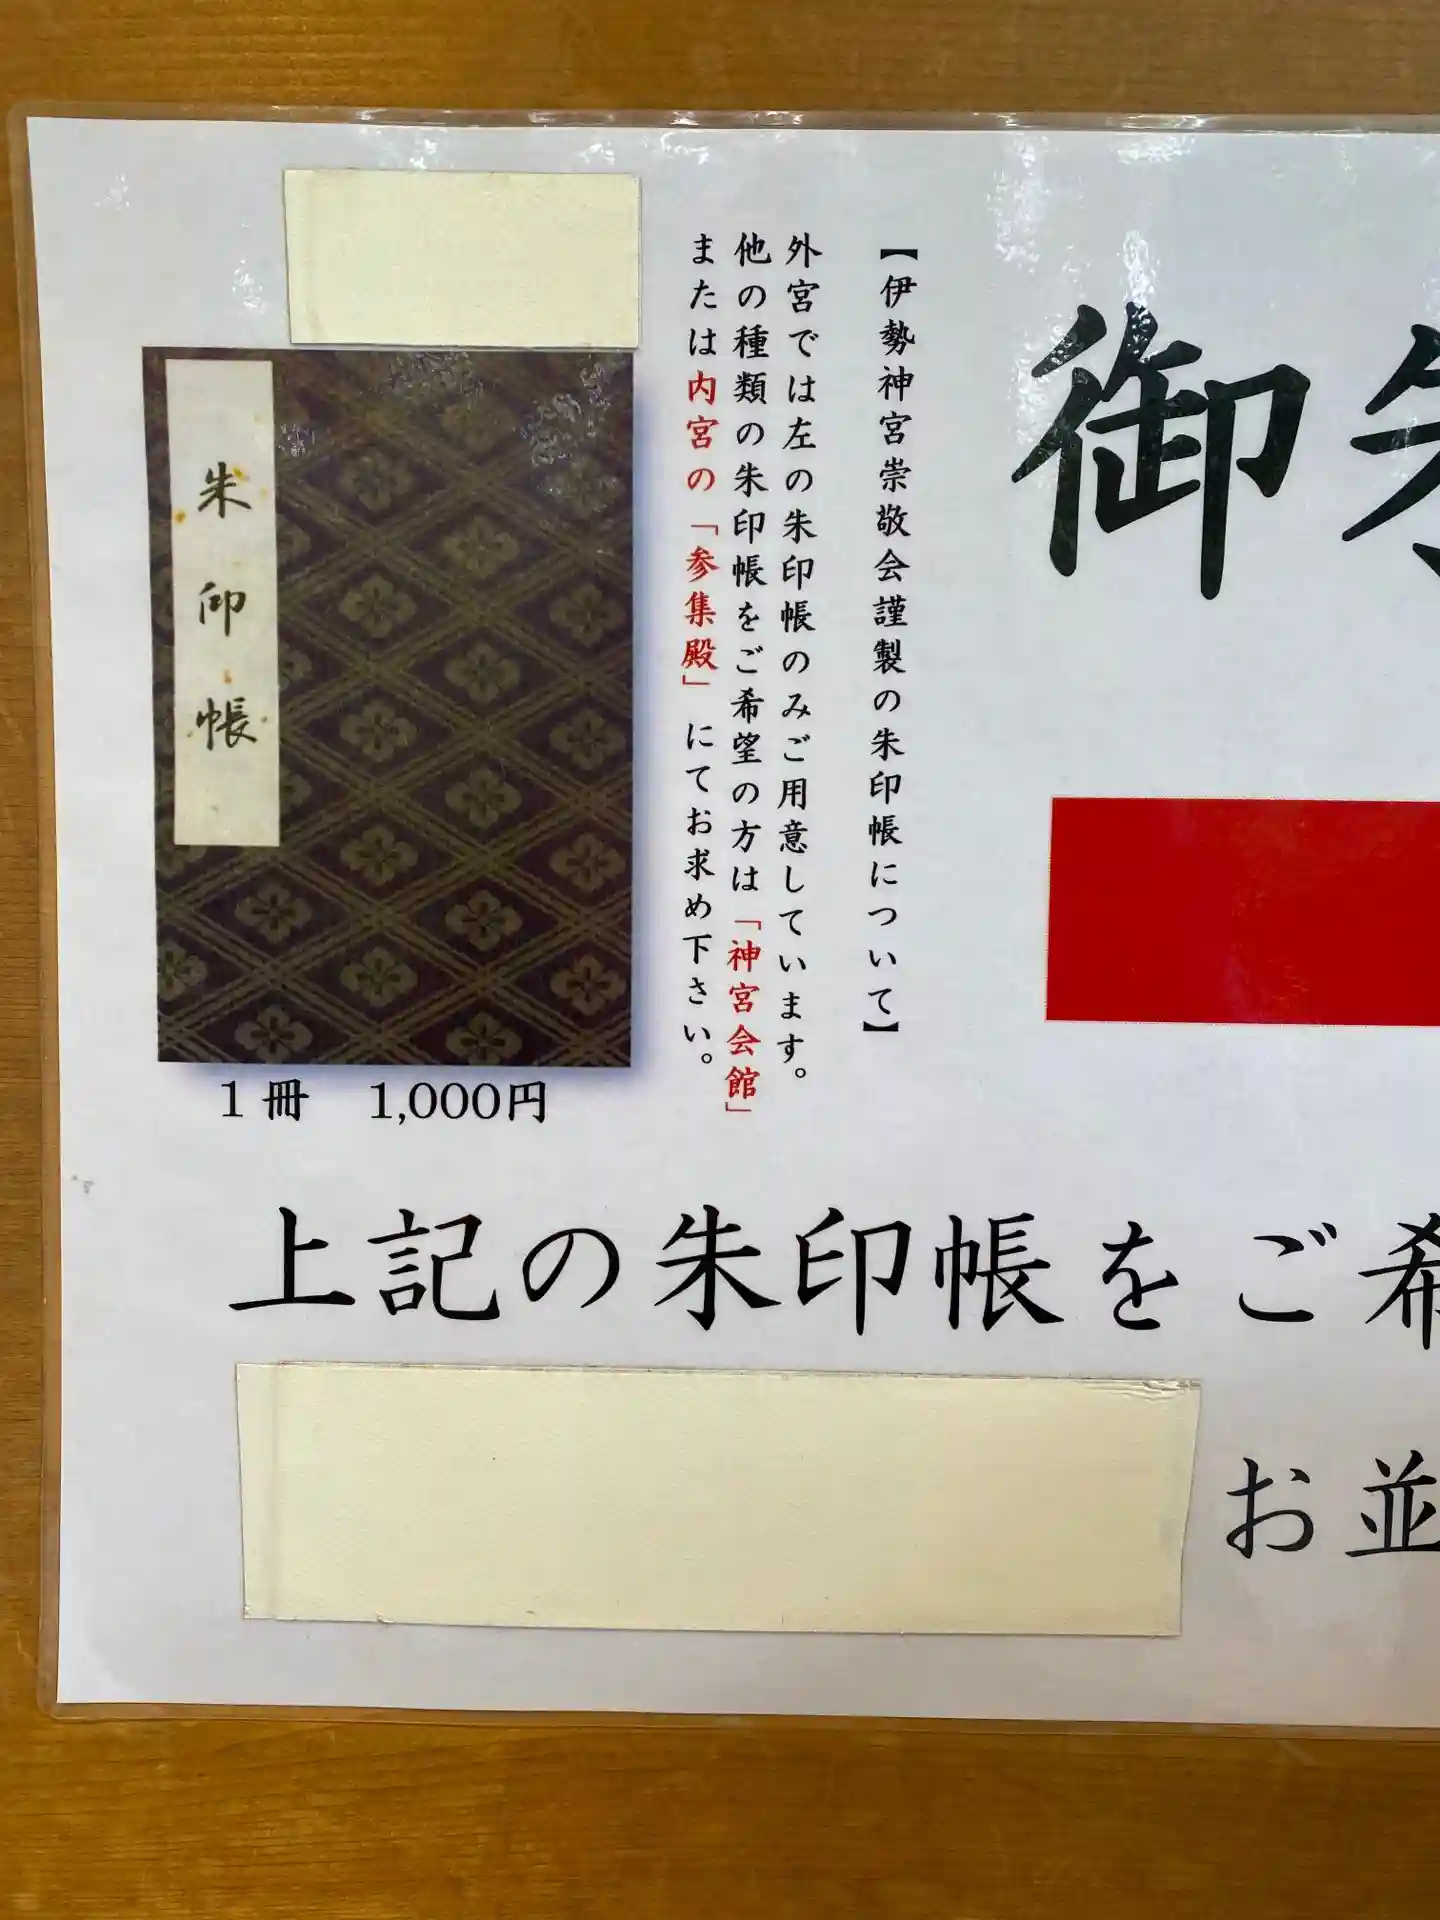 御朱
【伊勢神宮崇敬会謹製の朱印帳について】
外宮では左の朱印帳のみご用意しています。
他の種類の朱印帳をご希望の方は「神宮会館」
または内宮の「参集殿」にてお求め下さい。
朱印帳
1冊　1,000円
上記の朱印帳をご希
お並